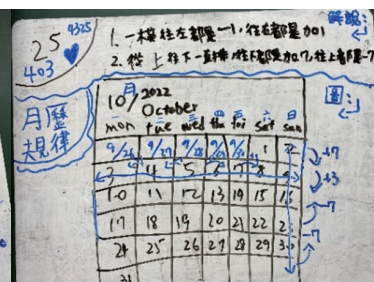 25
4325
403
月歷
規律
解說:
1. 一橫往左都是-1,往右都是加1
2. 從上往下一直排,往下都是加7,往上都是-7
圖:
10/月 2022
October
一 二 三 四 五 六 日
mon tue wed thu fri sat sun
9/26 9/27 9/28 9/29 9/30 1 2
3 4 5 6 7 8
10 11 12 13 14 15 16
17 18 19 20 21 22 23
24 25 26 27 28 29 30
31
+7
-7
-7